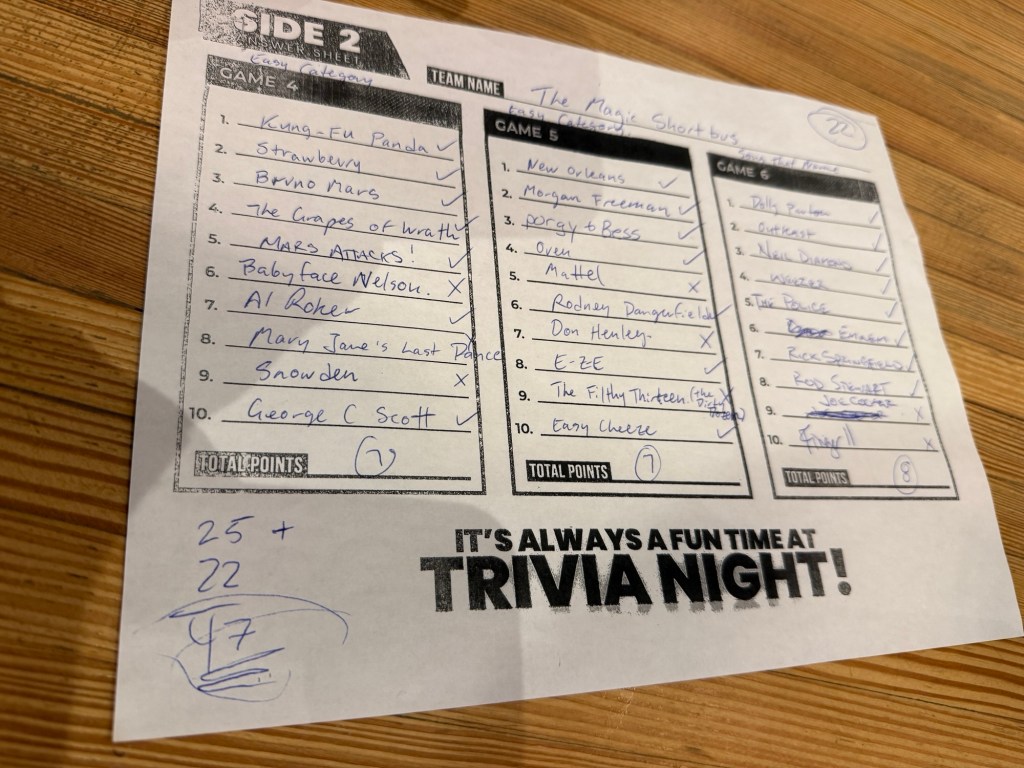 SIDE 2
ANSWER SHEET
TEAM NAME The Magic Shortbus
22
Easy Category
GAME 4
1. Kung-Fu Panda ✓
2. Strawberry ✓
3. Bruno Mars ✓
4. The Grapes of Wrath ✓
5. MARS ATTACKS! ✓
6. Babyface Nelson. X
7. Al Roker ✓
8. Mary Jane's Last Dance
9. Snowden X
10. George C Scott ✓
TOTAL POINTS 7
Easy Category
GAME 5
1. New Orleans ✓
2. Morgan Freeman ✓
3. Porgy & Bess ✓
4. Oven ✓
5. Mattel X
6. Rodney Dangerfield ✓
7. Don Henley- X
8. E-ZE ✓
9. The Filthy Thirteen. (the Dirty Dozen) X
10. Easy Cheeze ✓
TOTAL POINTS 7
GAME 6
1. Dolly Parton ✓
2. Outkast ✓
3. NEIL DIAMOND ✓
4. WEEZER ✓
5. THE POLICE ✓
6. Eminem ✓
7. RICK SPRINGFIELD ✓
8. ROD STEWART ✓
9. JOE COCKER X
10. X
TOTAL POINTS 8
25 +
22
47
IT'S ALWAYS A FUN TIME AT
TRIVIA NIGHT!